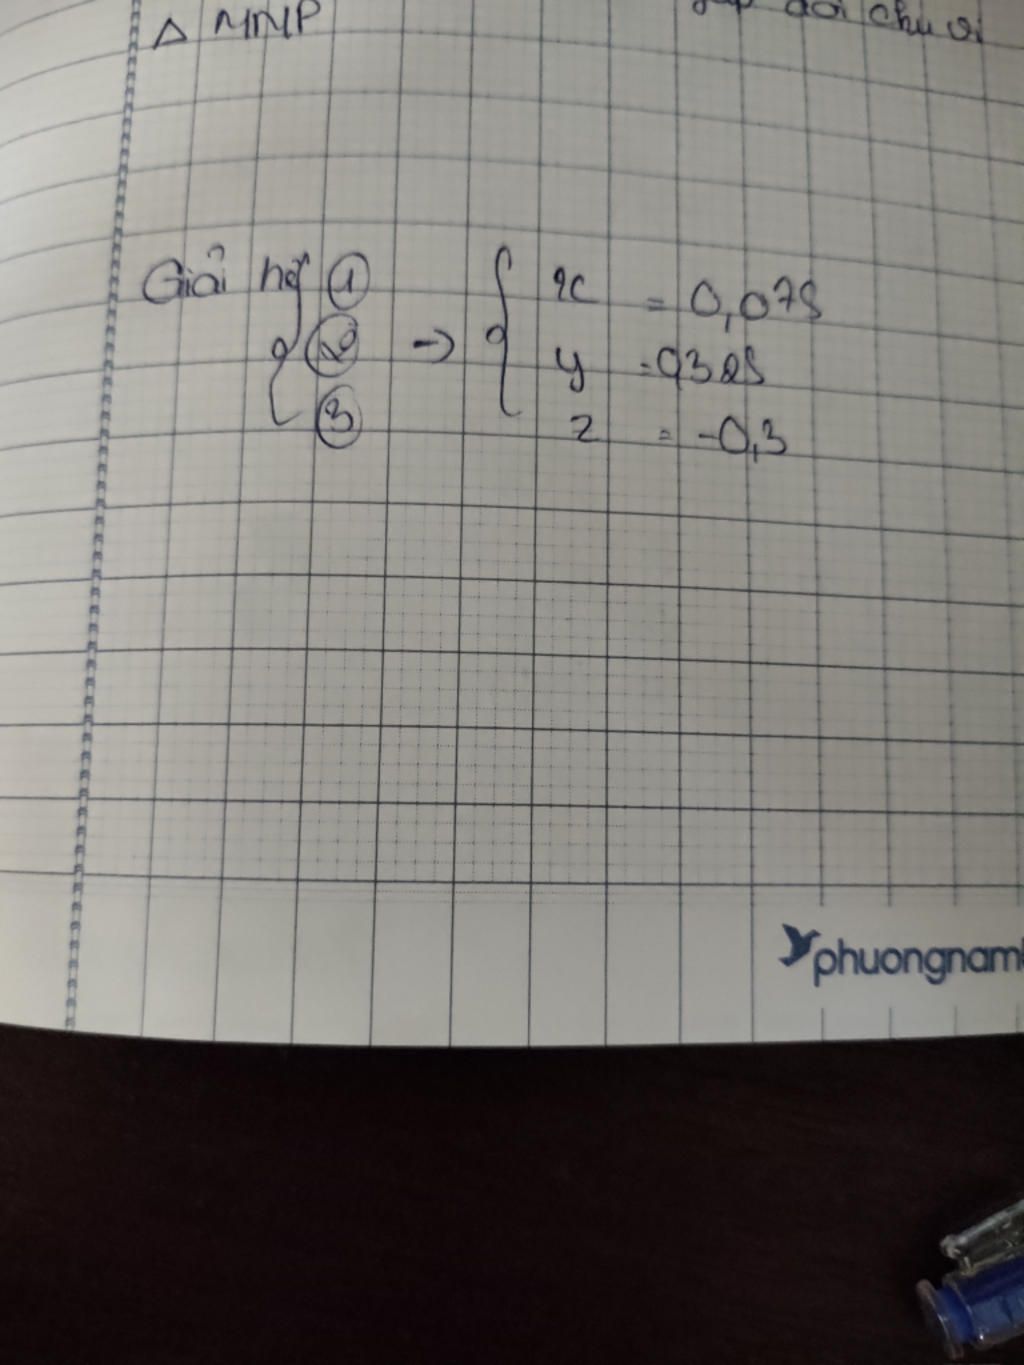 Δ MNP gấp đôi chu vi
Giải hệ ① → { x = 0,075
② y = 0,325
③ z = -0,3
phuongnam